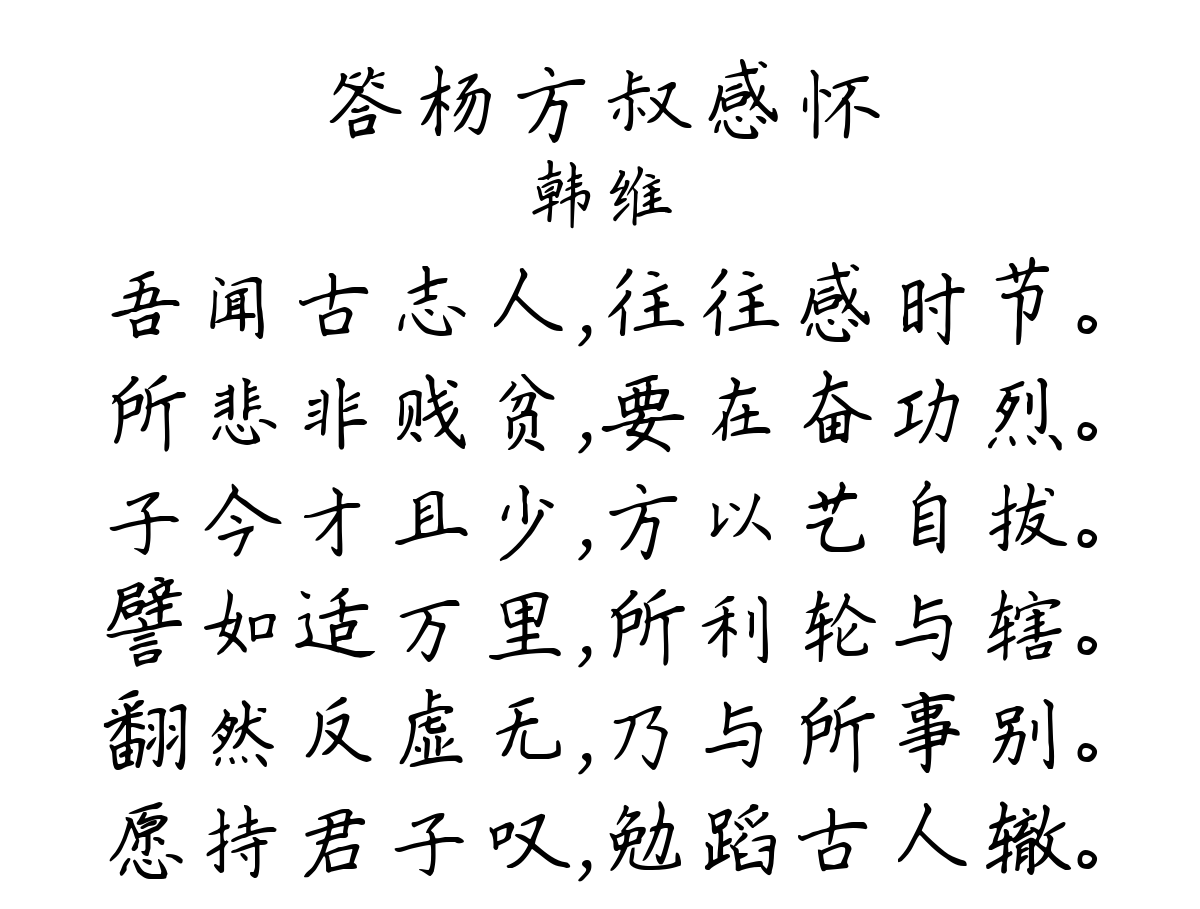 答杨方叔感怀
韩维
吾闻古志人,往往感时节。
所悲非贱贫,要在奋功烈。
子今才且少,方以艺自拔。
譬如适万里,所利轮与辖。
翻然反虚无,乃与所事别。
愿持君子叹,勉蹈古人辙。